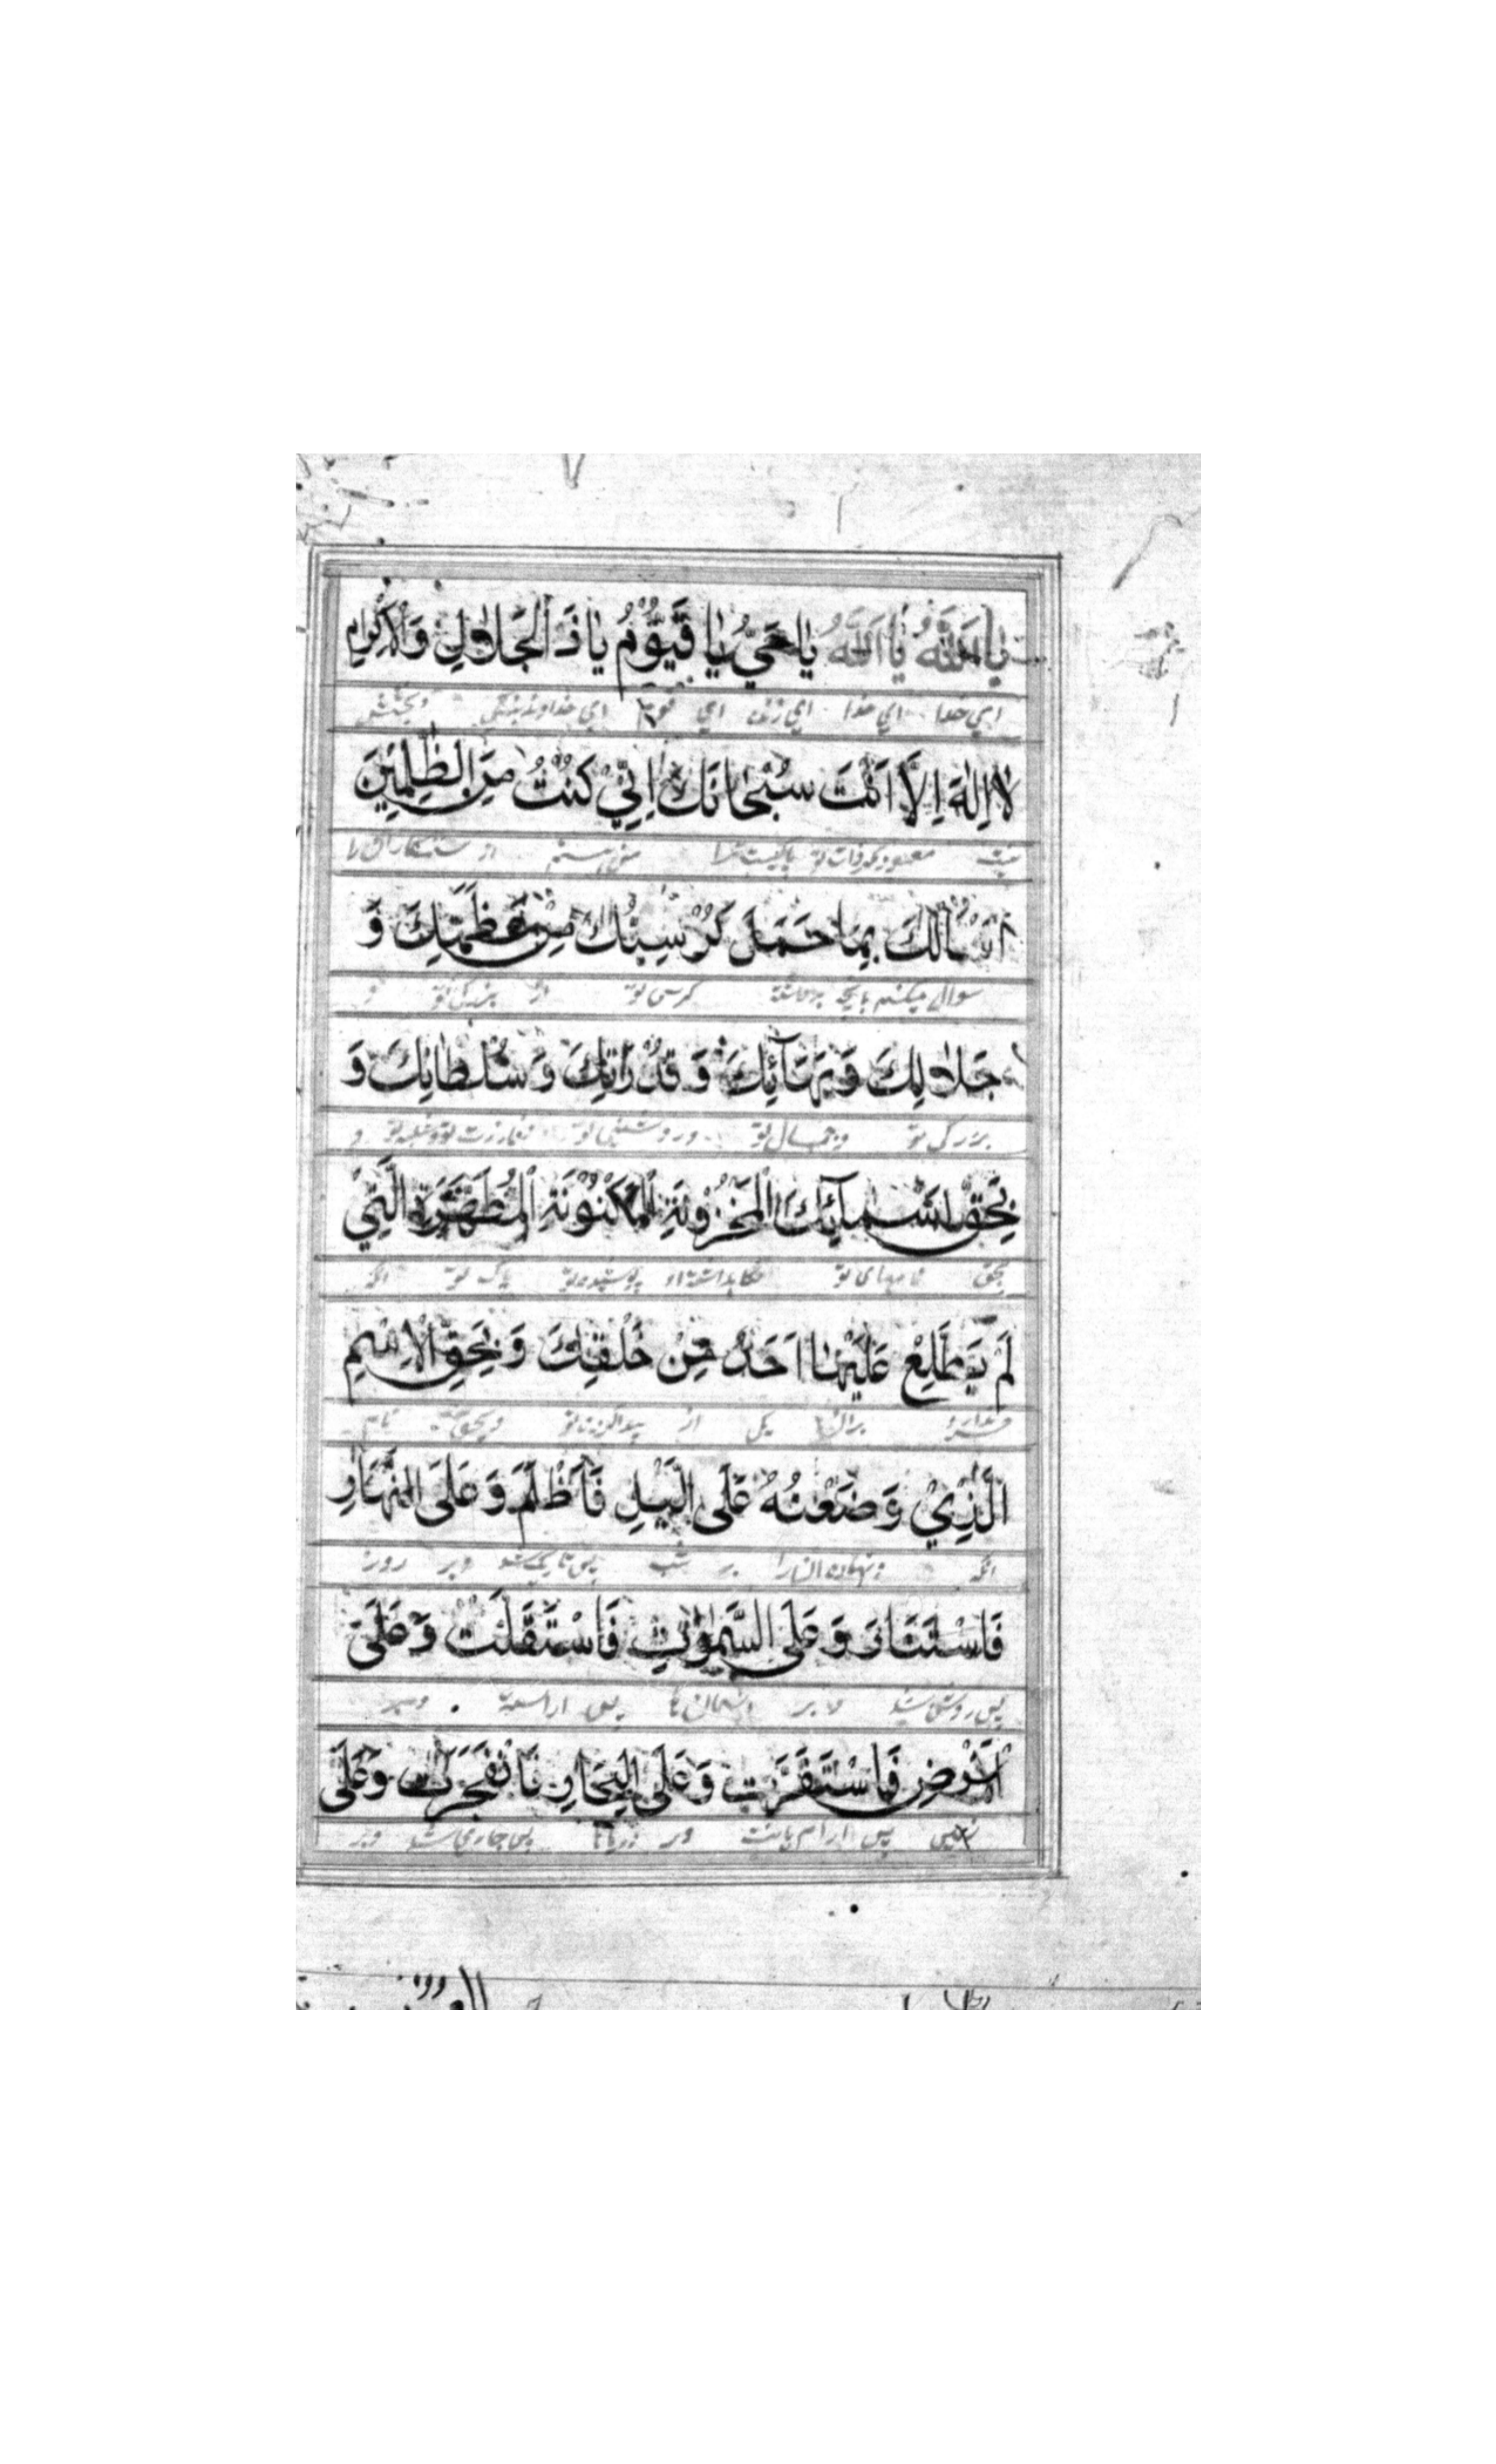 يَا اَللّٰهُ يَا اَللّٰهُ يَا حَيُّ يَا قَيُّوْمُ يَا ذَ الْجَلَالِ وَالْاِكْرَامِ
ای خدا ای خدا ای زنده ای ای خداوند بزرگی و بخشش
لَا اِلٰهَ اِلَّا اَنْتَ سُبْحَانَكَ اِنِّيْ كُنْتُ مِنَ الظّٰلِمِيْنَ
نیست معبود مگر ذات تو پاکیست ترا از ستمکاران
اَسْاَلُكَ بِمَا حَمَلَ كُرْسِيُّكَ مِنْ عَظَمَتِكَ وَ
سوال میکنم بانچه برداشته کرسی تو از بزرگی تو و
جَلَالِكَ وَبَهَآئِكَ وَ قُدْرَتِكَ وَ سُلْطَانِكَ وَ
بزرگی تو و جمال تو و روشنی تو و
بِحَقِّ اَسْمَآئِكَ الْمَخْزُوْنَةِ الْمَكْنُوْنَةِ الْمُطَهَّرَةِ الَّتِيْ
بحق نامهای تو پوشیده تو پاک تو انکه
لَمْ يَطَّلِعْ عَلَيْهَا اَحَدٌ مِنْ خَلْقِكَ وَ بِحَقِّ الْاِسْمِ
یکی از و بحق نام
الَّذِيْ وَضَعْتُهُ عَلَى الَّيْلِ فَاَظْلَمَ وَ عَلَى النَّهَارِ
انکه بر شب پس تاریک شد و بر روز
فَاسْتَنَارَ وَ عَلَى السَّمٰوٰتِ فَاسْتَقَلَّتْ وَ عَلَى
پس روشن شد و بر آسمان ها پس و بر
الْاَرْضِ فَاسْتَقَرَّتْ وَ عَلَى الْبِحَارِ فَانْفَجَرَتْ وَ عَلَى
زمین پس ارام یافت و بر دریاها پس جاری شد و بر